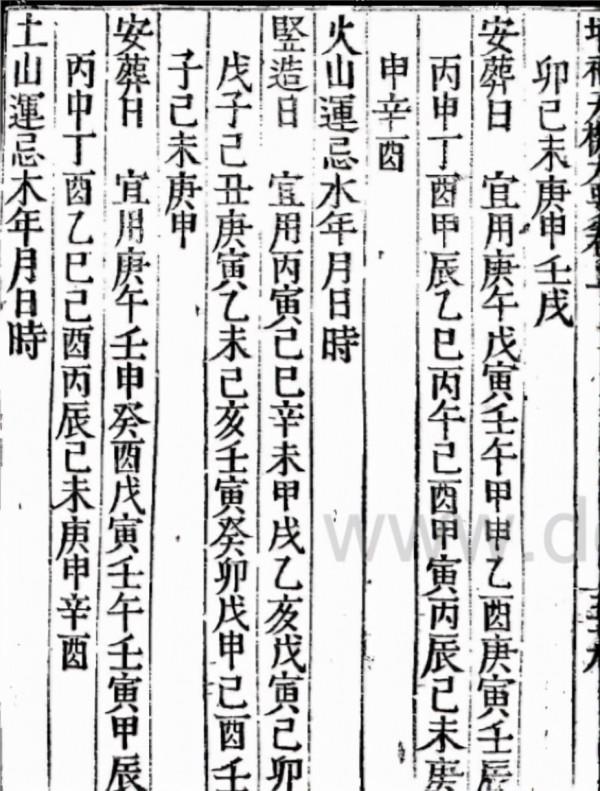 卯己未庚申壬戌
安葬日　宜用庚午戊寅壬午甲申乙酉庚寅壬辰
丙申丁酉甲辰乙巳丙午己酉甲寅丙辰己未庚
申辛酉
火山運忌水年月日時
竪造日　宜用丙寅己巳辛未甲戌乙亥戊寅己卯
戊子己丑庚寅乙未己亥壬寅癸卯戊申己酉壬
子己未庚申
安葬日　宜用庚午壬申癸酉戊寅壬午壬寅甲辰
丙申丁酉乙巳己酉丙辰己未庚申辛酉
土山運忌木年月日時
www.d